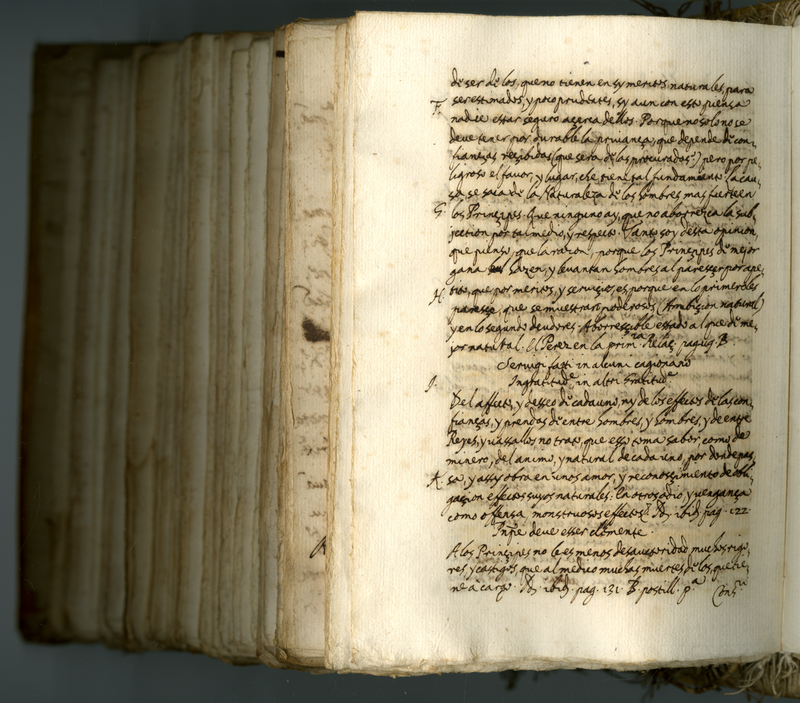 de ser de los, que no tienen en sy meritos naturales, para
F. ser estimados, y poco prudẽtes, sy aun con esto piensa
nadie estar seguro açerca dellos. Porque no solo no se
deve tener por durable la privança, que depende de con,
fianças resçibidas (que sera de las procuradas?) pero por pe,
ligroso el favor, y lugar, che tiene tal fundamiento la cau,
sa se saca de la Naturaleza de los hombres mas fuerte en
G. los Prinçipes. Que ninguno ay, que no aborrezca la sub,
jection por tal medio, y respecto. Tanto soy desta opinion,
que pienso, que la razon, porque los Prinçipes de mejor
gana hazen, y levantan hombres al paresçer por ape,
H. tito, que por meritos, y serviçio, es, porque en lo primero les
paresçe, que se muestran poderosos (Ambiçion natural)
y en lo segundo deudores. Aborresçible estado al que de me,
jor natural. A. Perez en la prim.ra Relaç. pag. 119. B.
Servigi fatti in alcuni cagionano
I. Ingratitud.e in altri Gratitud.e
Del affecto, y desseo de cada uno, ny de los effectos de las con,
fianças, y prendas de entre hombres, y hombres, y de entre
Reyes, y vassallos no trato, que esso toma sabor, como de
minero, del animo, y natural de cada uno, por donde pas,
K. sa, y assy obra en unos amor, y reconosçimiento de obli,
gaçion effectos suyos naturales: en otros odio, y vengança
como offensa, monstruosos effectos. Id. ibid. pag. 122.
Prnpe deve esser clemente.
A los Prinçipes no les es menos desauctoridad muchos rigo,
res, y castigos, que al medico muchas muertes de los, que tie,
ne a cargo. Id. ibid. pag. 131. B. postill. p.a